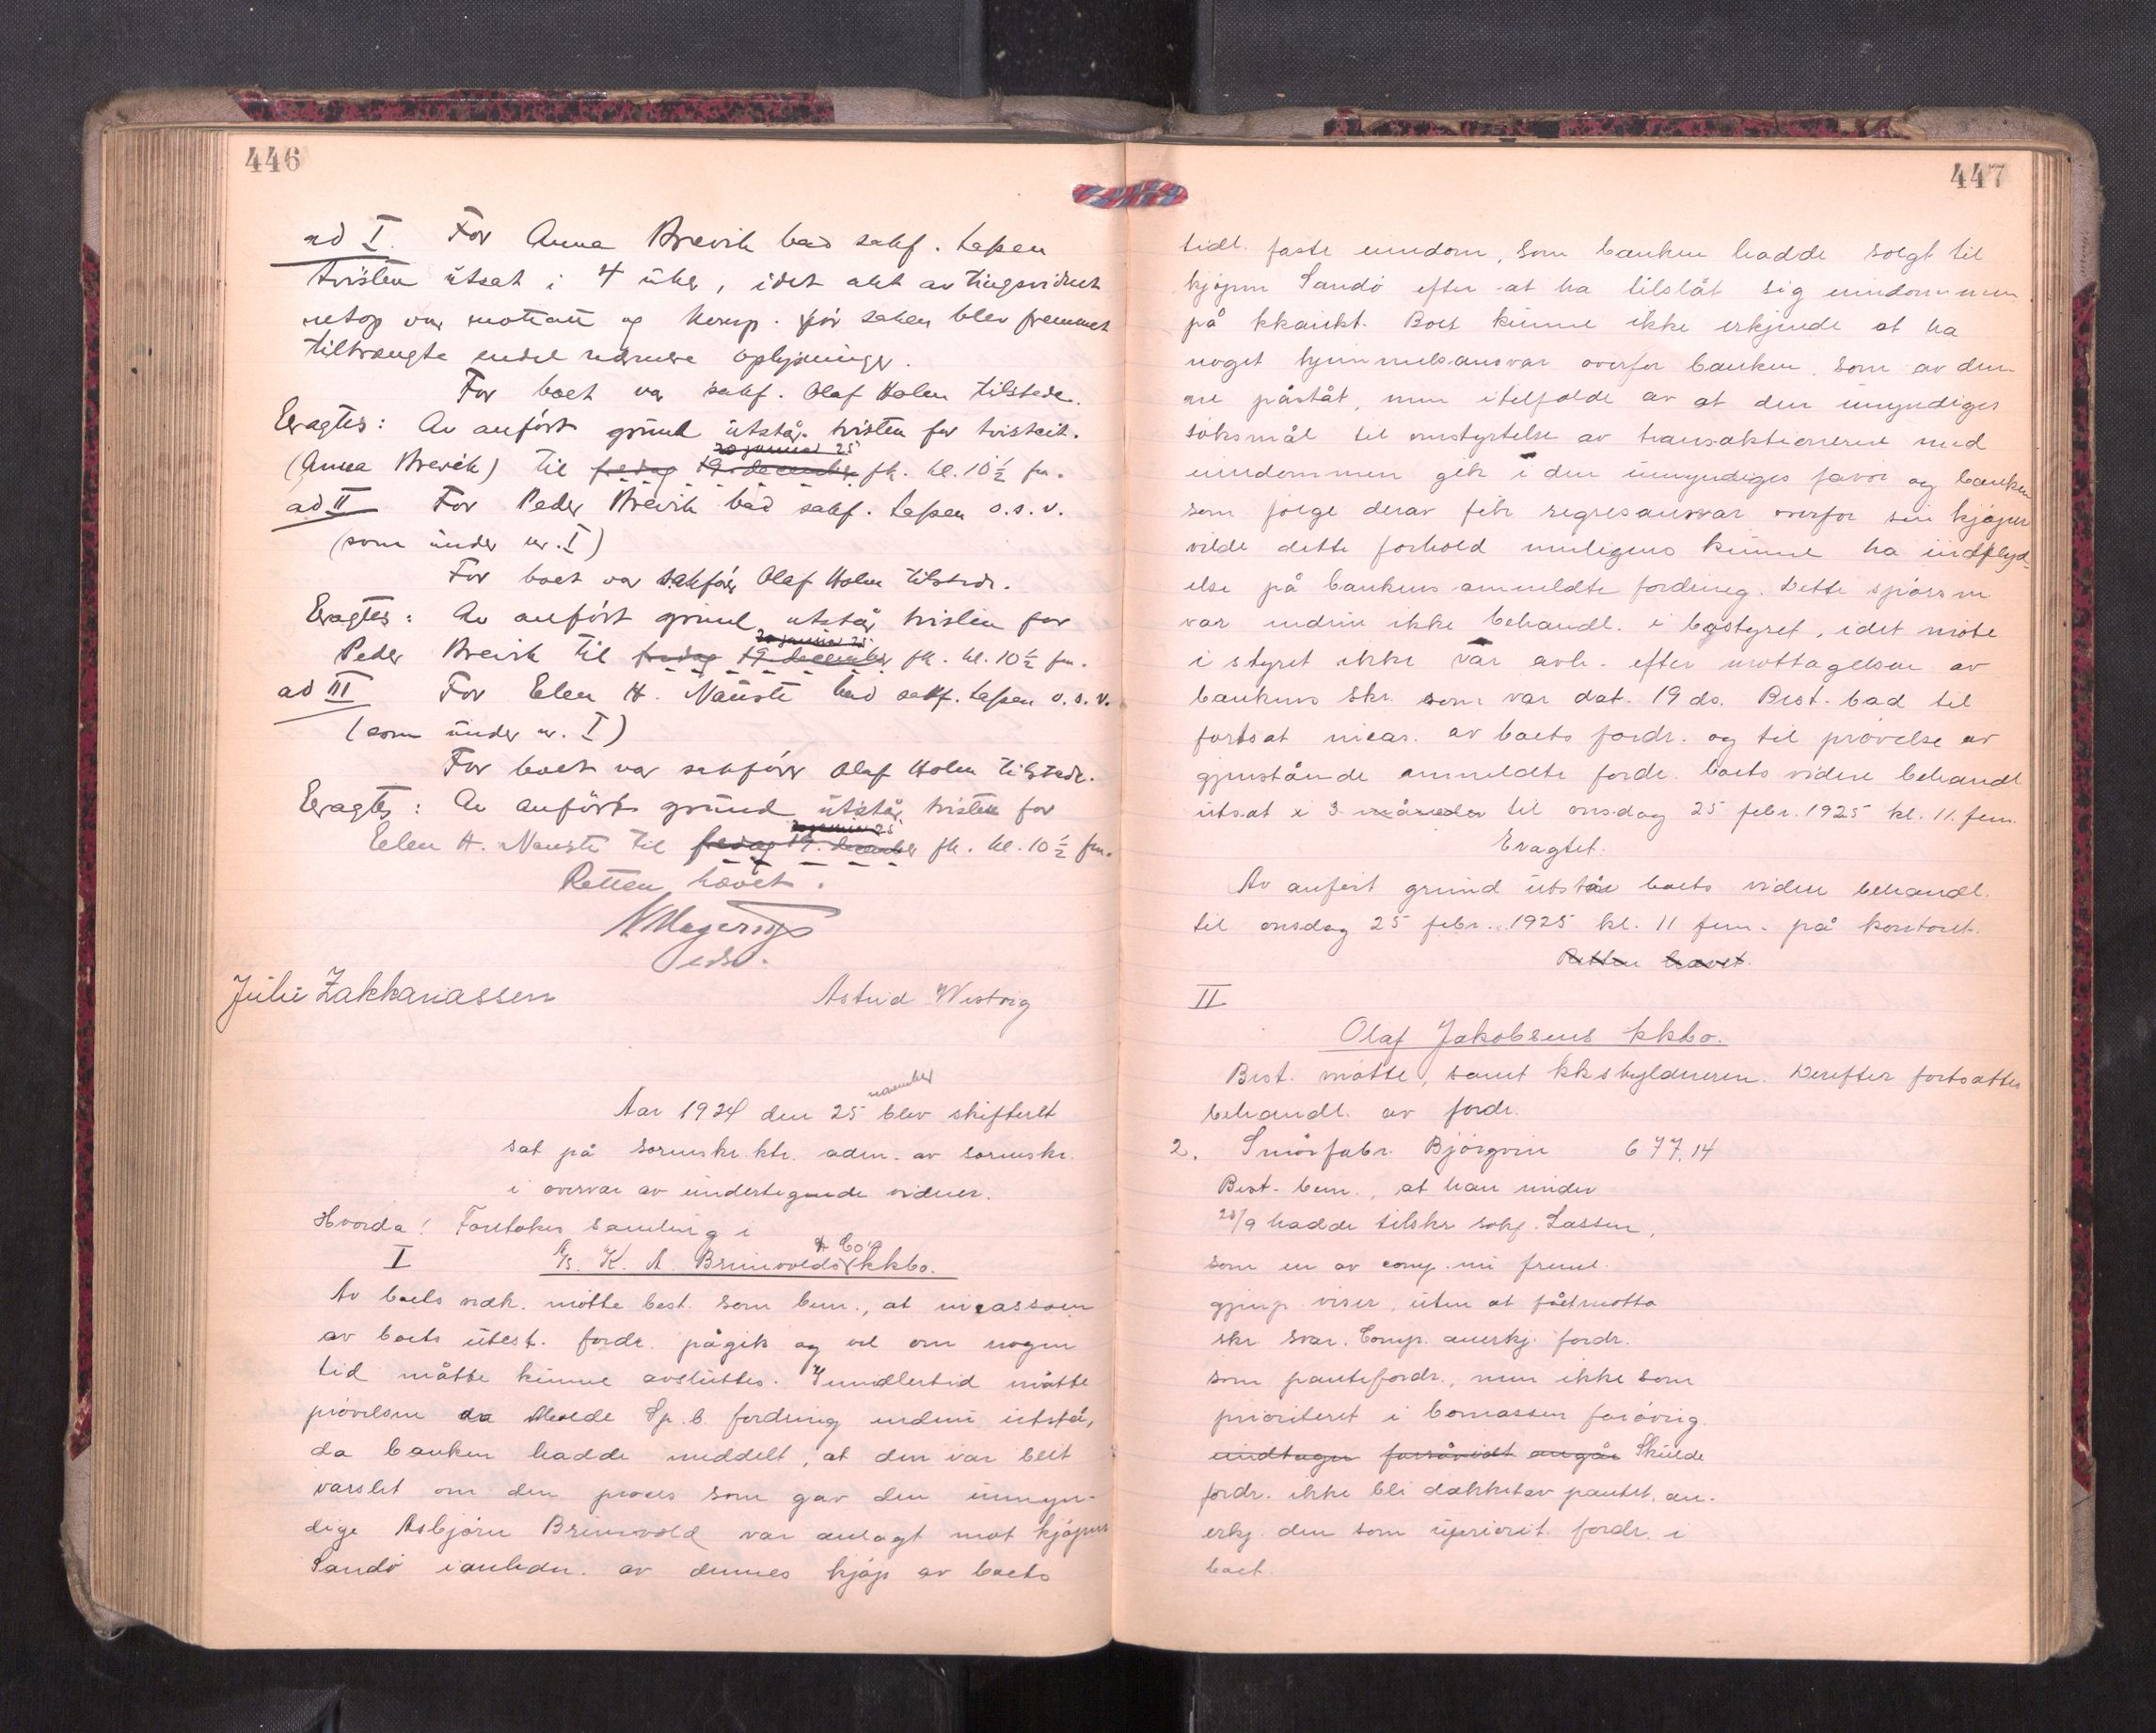 446
ad I. For Anna Brevik bad sakf. Lassen
tvisten utsat i 4 uker, idet akt av tingsvidnet
netop var mottatt og komp. før saken blev fremmet
tiltrængte endel nærmere oplysninger.
For boet var sakf. Olaf Holen tilstede.
Eragtes: Av anført grund utstår tvisten for tvisteit.
20 januar 25
(Anna Brevik) til fredag 19. december fk. kl. 10½ fm.
ad II For Peder Breivik bad sakf. Lassen o.s.v.
(som under nr. I)
For boet var sakfører Olaf Holen tilstede.
Eragtes: Av anført grund utstår tvisten for
20 januar 25
Peder Breivik til fredag 19 december fk. kl. 10½ fm.
ad III For Elen H. Nauste bad sakf. Lassen o.s.v.
(som under nr. I)
For boet var sakfører Olaf Holen tilstede.
Eragtes: Av anført grund utstår tvisten for
20 januar 25
Elen H. Nauste til fredag 19. december fk. kl. 10½ fm.
Retten hævet.
Julie Zakkariassen Astrid Westvig
november
Aar 1924 den 25 blev skifterett
sat på sorenskr.ktr. adm. av sorenskr.
i overvær av undertegnede vidner.
Hvorda! Foretokes samling i
& Co's
I A/s. K. A. Brunvolds kkbo.
Av boets vedk. møtte best. som bem., at incasson
av boets utest. fordr. pågik og vil om nogen
tid måtte kunne avsluttes. Imidlertid måtte
prøvelsen av Molde Sp.b. fordring endnu utstå,
da banken hadde meddelt, at den var blit
varslet om den proces som gav den umyn-
dige Asbjørn Brunvold var anlagt mot kjøper
Sandö i anledn. av dennes kjøp av boets
447
tidl. faste eiendom, som banken hadde solgt til
kjøper Sandö efter at ha tilslåt sig eiendommen
på kkaukt. Boet kunne ikke erkjende at ha
noget hjemmelsansvar overfor banken, som av den-
ne påståt, men i tilfælde av at den umyndiges
søksmål til omstyrtelse av transaktionerne med
eiendommen gik i den umyndiges favør og banken
som følge derav fik regresansvar overfor sin kjøper
vilde dette forhold muligens kunne ha indflyd-
else på bankens anmeldte fordring. Dette spørsm
var endnu ikke behandl. i bostyret, idet møte
i styret ikke var avh. efter mottagelsen av
bankens skr. som var dat. 19 ds. Best. bad til
fortsat incas. av boets fordr. og til prøvelse av
gjenstående anmeldte fordr. boets videre behandl
utsat i 3 måneder til onsdag 25 febr. 1925 kl. 11. fm.
Eragtet:
Av anført grund utstår boets videre behandl.
til onsdag 25 febr. 1925 kl. 11 fm. på kontoret.
Retten hævet.
II
Olaf Jakobsens kkbo.
Best. møtte, samt kkskyldneren. Derefter fortsattes
behandl. av fordr.
2. Smørfabr. Bjørgvin 677,14
Best. bem., at han under
23/9 hadde tilskr sakf. Lassen,
som en av comp. nu freml.
gjenp. viser, uten at få motta
skr svar. Comp. anerkj. fordr.
som pantefordr., men ikke som
prioriteret i bomassen forøvrig.
undtagen forsåvidt angår Skulde
fordr. ikke bli dækket av pantet, an-
erkj. den som upriorit. fordr. i
boet.